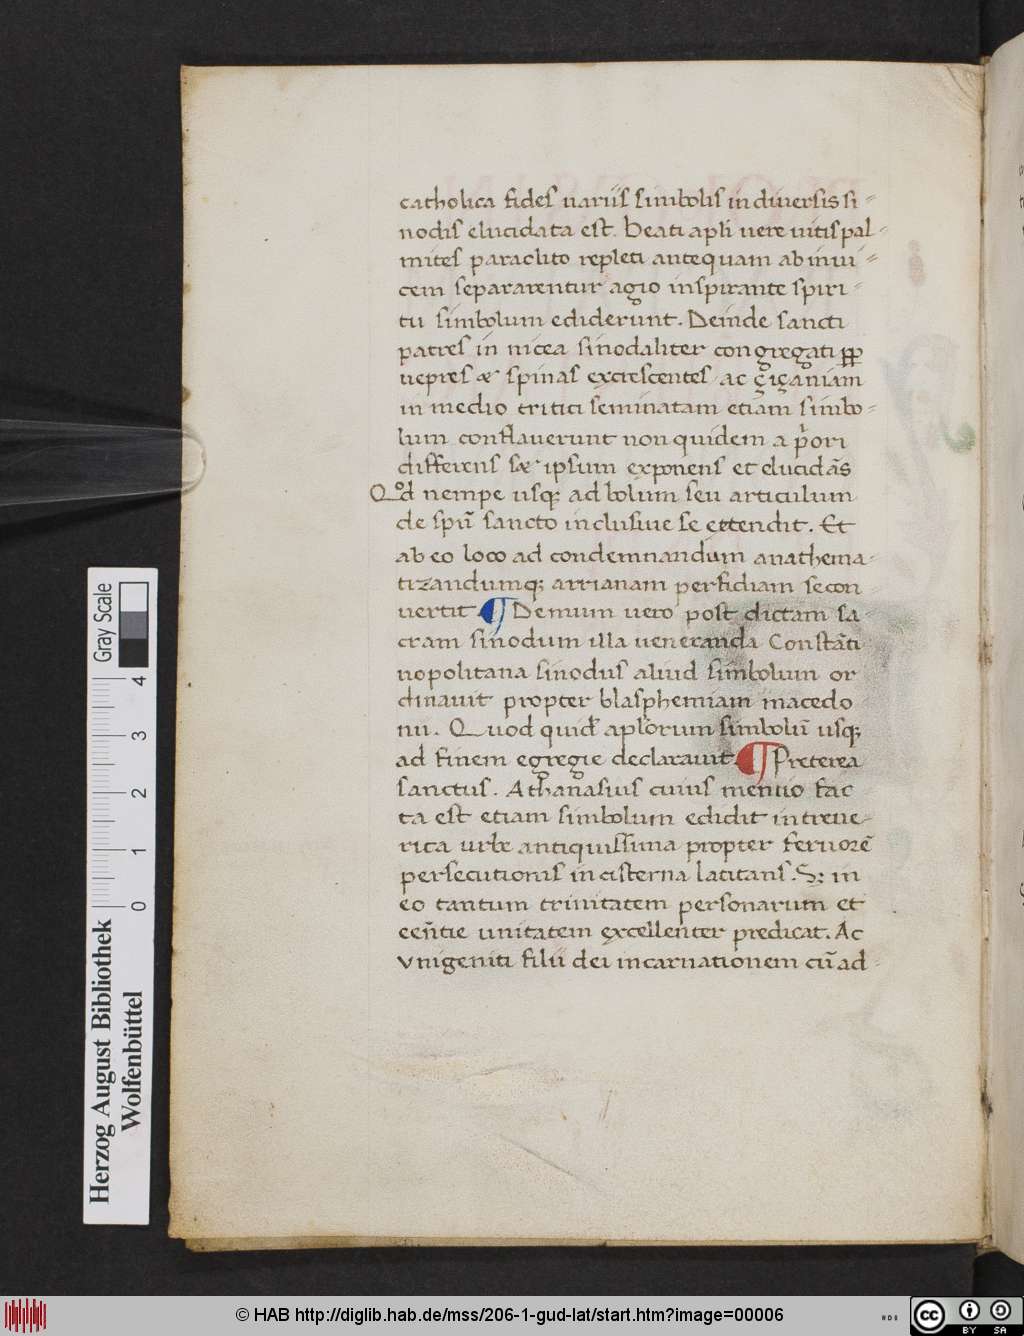 catholica fides uariis simbolis in diuersis si-
nodis elucidata est. Beati apli uere uitis pal-
mites paraclito repleti antequam ab inui-
cem separarentur agio inspirante spiri-
tu simbolum ediderunt. Deinde sancti
patres in nicea sinodaliter congregati ꝓp
uepres & spinas excrescentes ac çiçaniam
in medio tritici seminatam etiam simbo-
lum conflauerunt non quidem a p̄ori
differens s& ipsum exponens et elucidās
Qod nempe usq; ad bolum seu articulum
de spū sancto inclusiue se ettendit. Et
ab eo loco ad condemnandum anathema-
tizandumq; arrianam perfidiam se con
uertit ¶ Demum uero post dictam sa-
cram sinodum illa ueneranda Constāti
nopolitana sinodus aliud simbolum or
dinauit propter blasphemiam macedo
nii. Quod quid apl'orum simbolū usq;
ad finem egregie declarauit ¶ Preterea
sanctus. Athanasius cuius mentio fac
ta est etiam simbolum edidit in treue-
rica urbe antiquissima propter feruorē
persecutionis in cisterna latitans. S; in
eo tantum trinitatem personarum et
eēntie unitatem excellenter predicat. Ac
vnigeniti filii dei incarnationem cū ad-
Herzog August Bibliothek
Wolfenbüttel
Gray Scale
0 1 2 3 4
© HAB http://diglib.hab.de/mss/206-1-gud-lat/start.htm?image=00006
cc BY SA